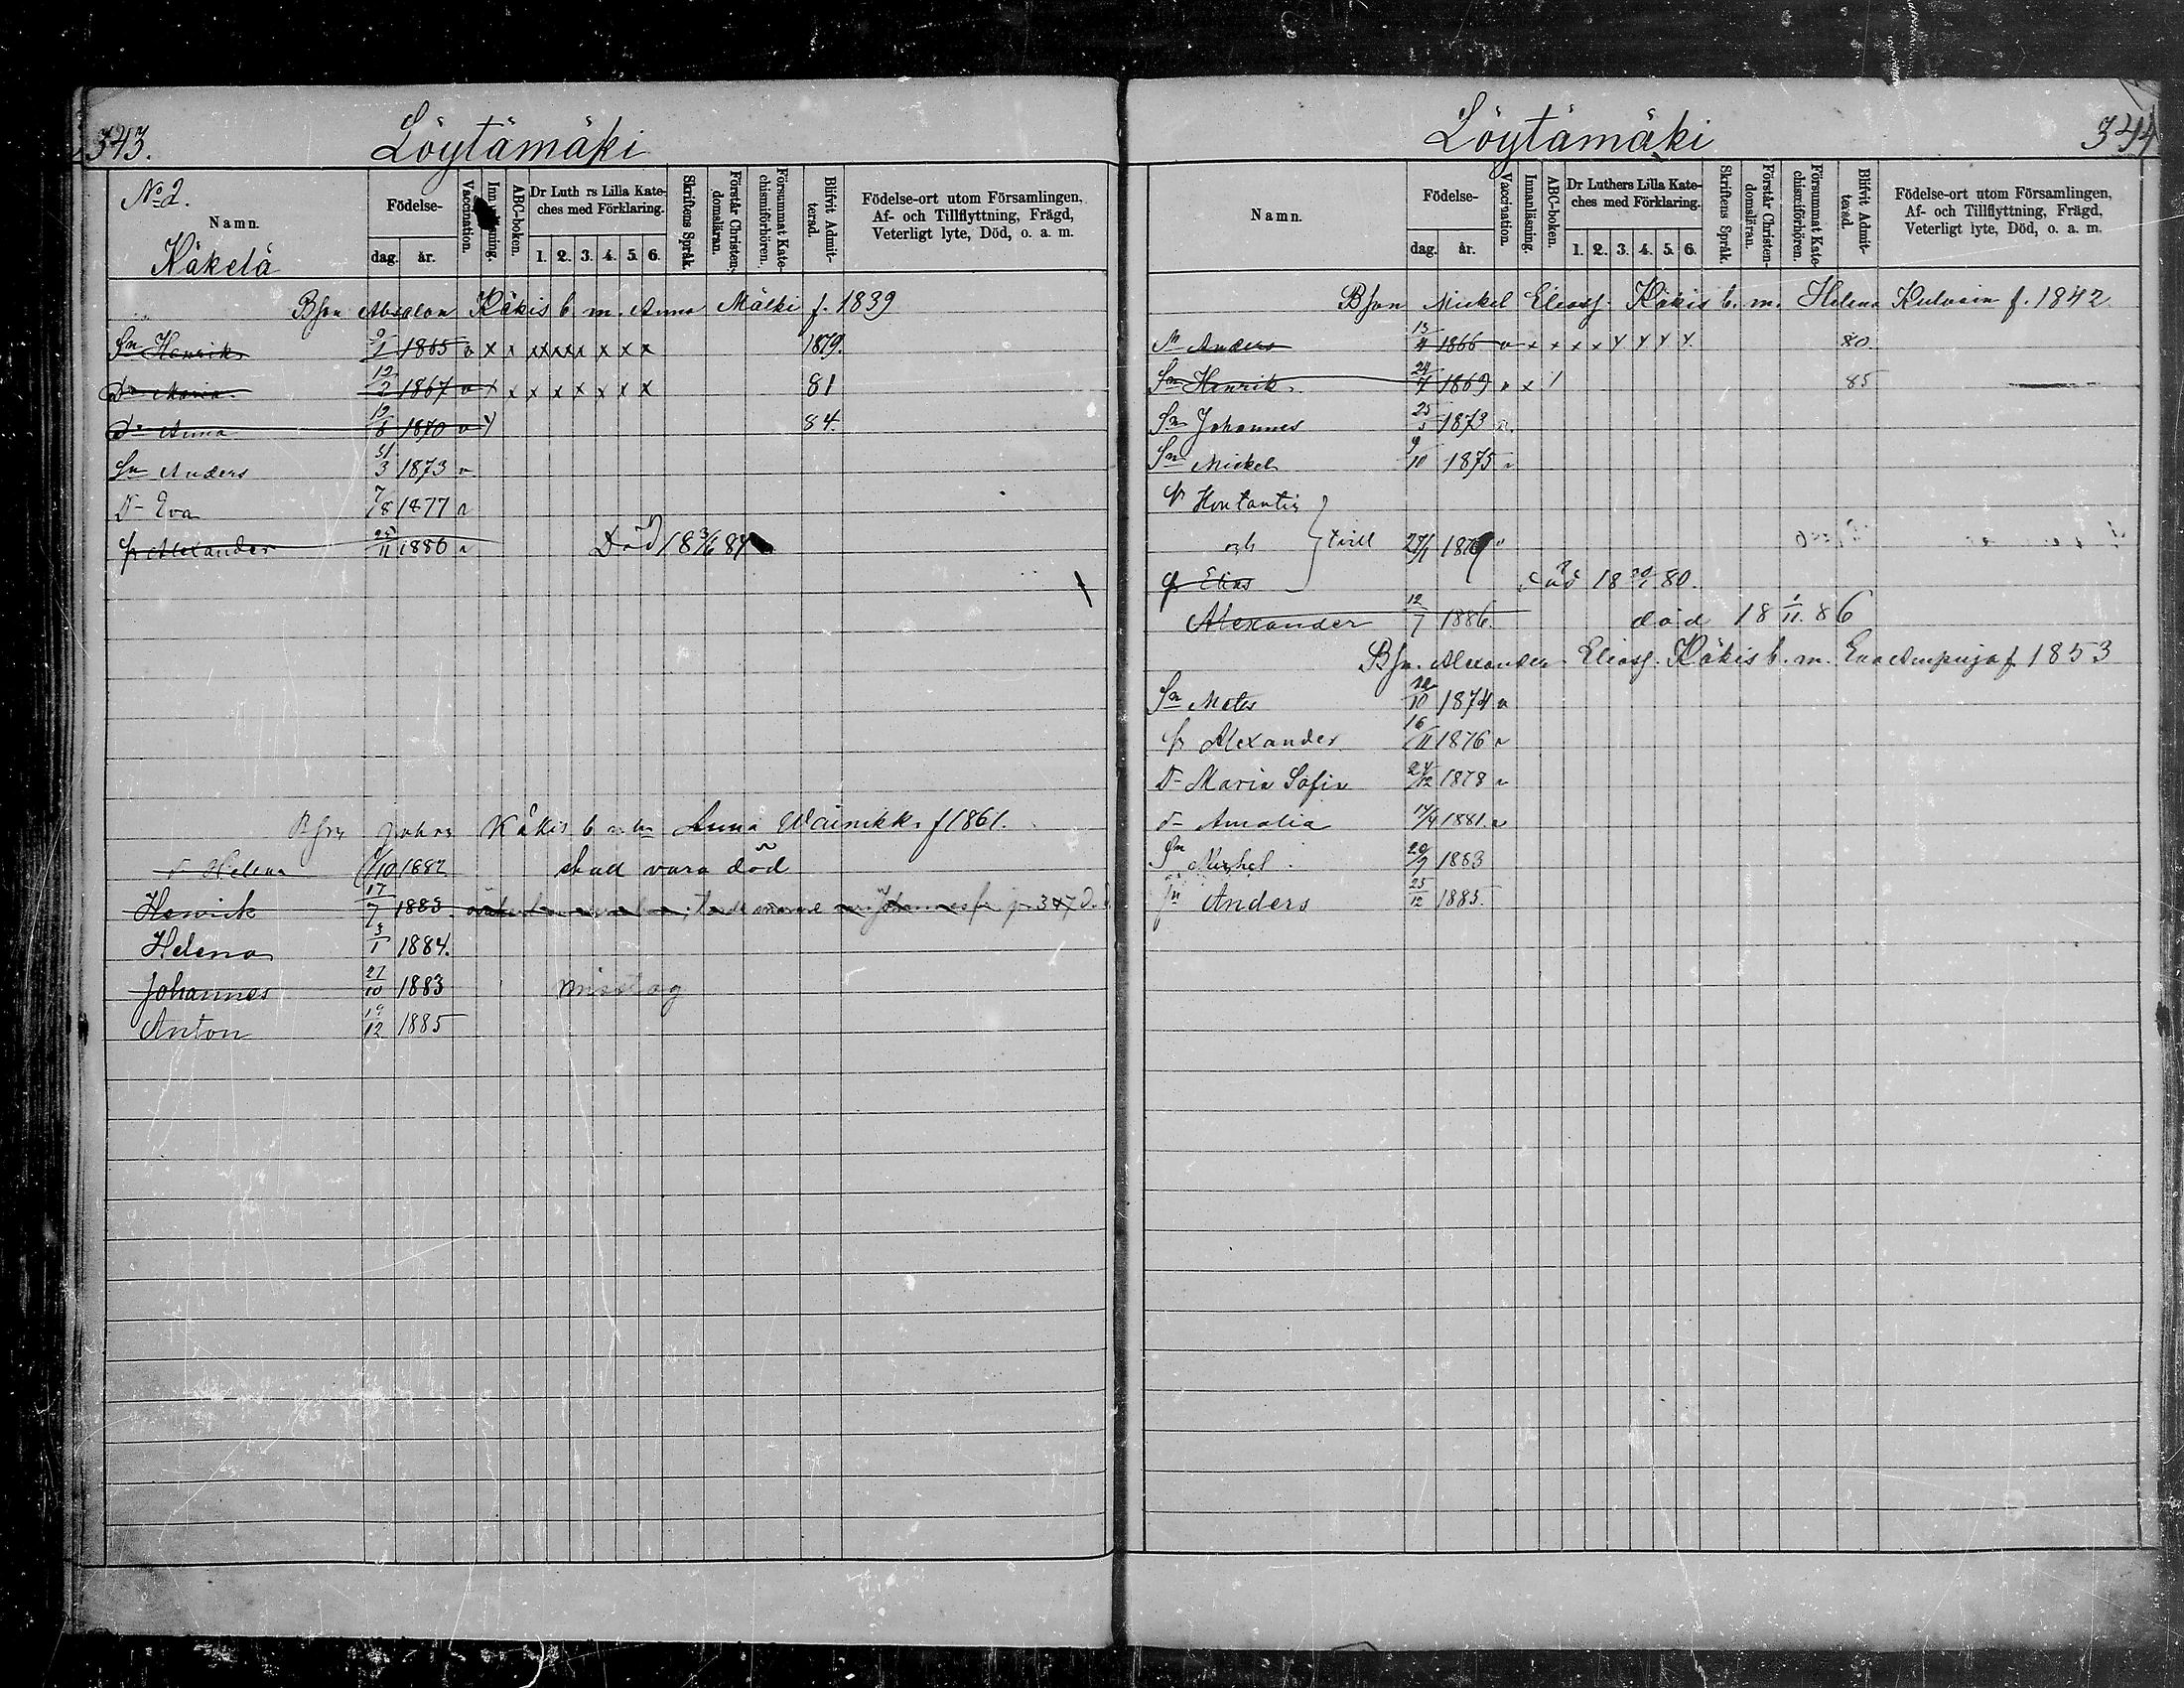 343.
Löytämäki
No 2.
Namn.
Käkelä
Födelse-
dag. år.
Vaccination.
ABC-boken.
Dr Luth rs Lilla Kate-
ches med Förklaring.
1. 2. 3. 4. 5. 6.
Skriftens Språk.
Förstår Christen-
domsläran.
Försummat Kate-
chismiförhören.
Blifvit Admit-
terad.
Födelse-ort utom Församlingen,
Af- och Tillflyttning, Frägd,
Veterligt lyte, Död, o. a. m.
Bson Absalon Käkis b. m. Anna Mälki f. 1839
Sn Henrik 9/1 1865 v x x x x x x x x x 1879.
Dr Maria 12/2 1867 v x x x x x x x x 81
Dr Anna 12/8 1870 v 84.
Sn Anders 31/3 1873 v
Dr Eva 7/8 1877 v
Alexander 25/11 1886 v Död
Bson Johan Käkis b m Anna f 1861.
Dr Helena /10 1882 skall vara död
Henrik 17/7 1883. 347
Helena 3/1 1884.
Johannes 27/10 1883 misstag
Anton 19/12 1885
Löytämäki
344
Namn.
Födelse-
dag. år.
Vaccination.
Innanläsning.
ABC-boken.
Dr Luthers Lilla Kate-
ches med Förklaring.
1. 2. 3. 4. 5. 6.
Skriftens Språk.
Förstår Christen-
domsläran.
Försummat Kate-
chismiförhören.
Blifvit Admit-
terad.
Födelse-ort utom Församlingen,
Af- och Tillflyttning, Frägd,
Veterligt lyte, Död, o. a. m.
Bson Mickel Eliass. Käkis b. m. Helena f. 1842
Sn Anders 13/4 1866 v x x x x x x x x 80.
Sn Henrik 24/7 1869 v x 85
Sn Johannes 25/5 1873 v.
Sn Mickel 9/10 1875 v
och } tvill 27/1 1879 v
Elias död 18 80.
Alexander 12/7 1886. död 18 1/11. 86
Bsn. Alexander Eliass. Käkis b. m. Eva f. 1853
Sn Mats 10 1874 v
Alexander 16/11 1876 v
Dr Maria Sofia 24/12 1878 v
Dr Amalia 14/4 1881. v
Sn Michel 29/7 1883
Sn Anders 25/12 1885.